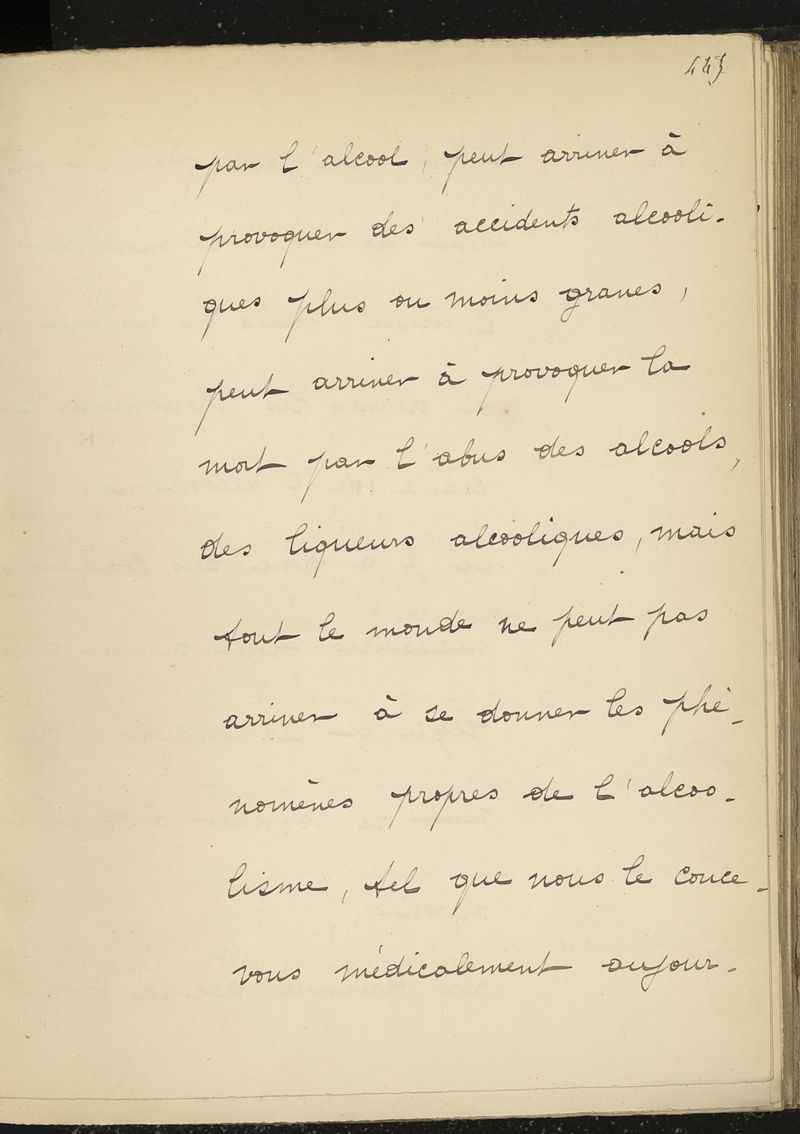 par l'alcool, peut arriver à
provoquer des accidents alcooli-
ques plus ou moins graves,
peut arriver à provoquer la
mort par l'abus des alcools,
des liqueurs alcooliques, mais
tout le monde ne peut pas
arriver à se donner les phé-
nomènes propres de l'alcoo-
lisme, tel que nous le conce-
vons médicalement aujour-